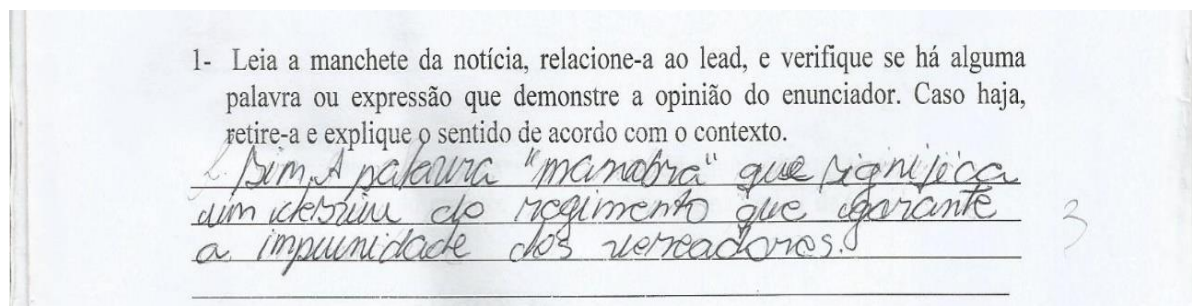 1- Leia a manchete da notícia, relacione-a ao lead, e verifique se há alguma
palavra ou expressão que demonstre a opinião do enunciador. Caso haja,
retire-a e explique o sentido de acordo com o contexto.
Sim, A palavra "manobra" que significa
um desvio do regimento que garante
a impunidade dos vereadores.
3